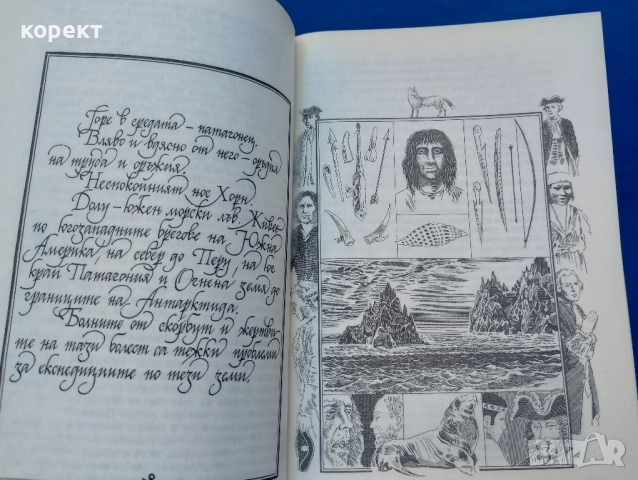 корект
Горе в средата – патагонец.
Вляво и вдясно от него – оръдия
на труда и оръжия.
Неспокойният нос Хорн.
Долу – южен морски лъв. Живее
по югозападните брегове на Южна
Америка, на север до Перу, на юг
край Патагония и Огнена земя до
границите на Антарктида.
Болните от скорбут и жертви-
те на тази болест са тежки проблеми
за експедициите по тези земи.
BAZAR